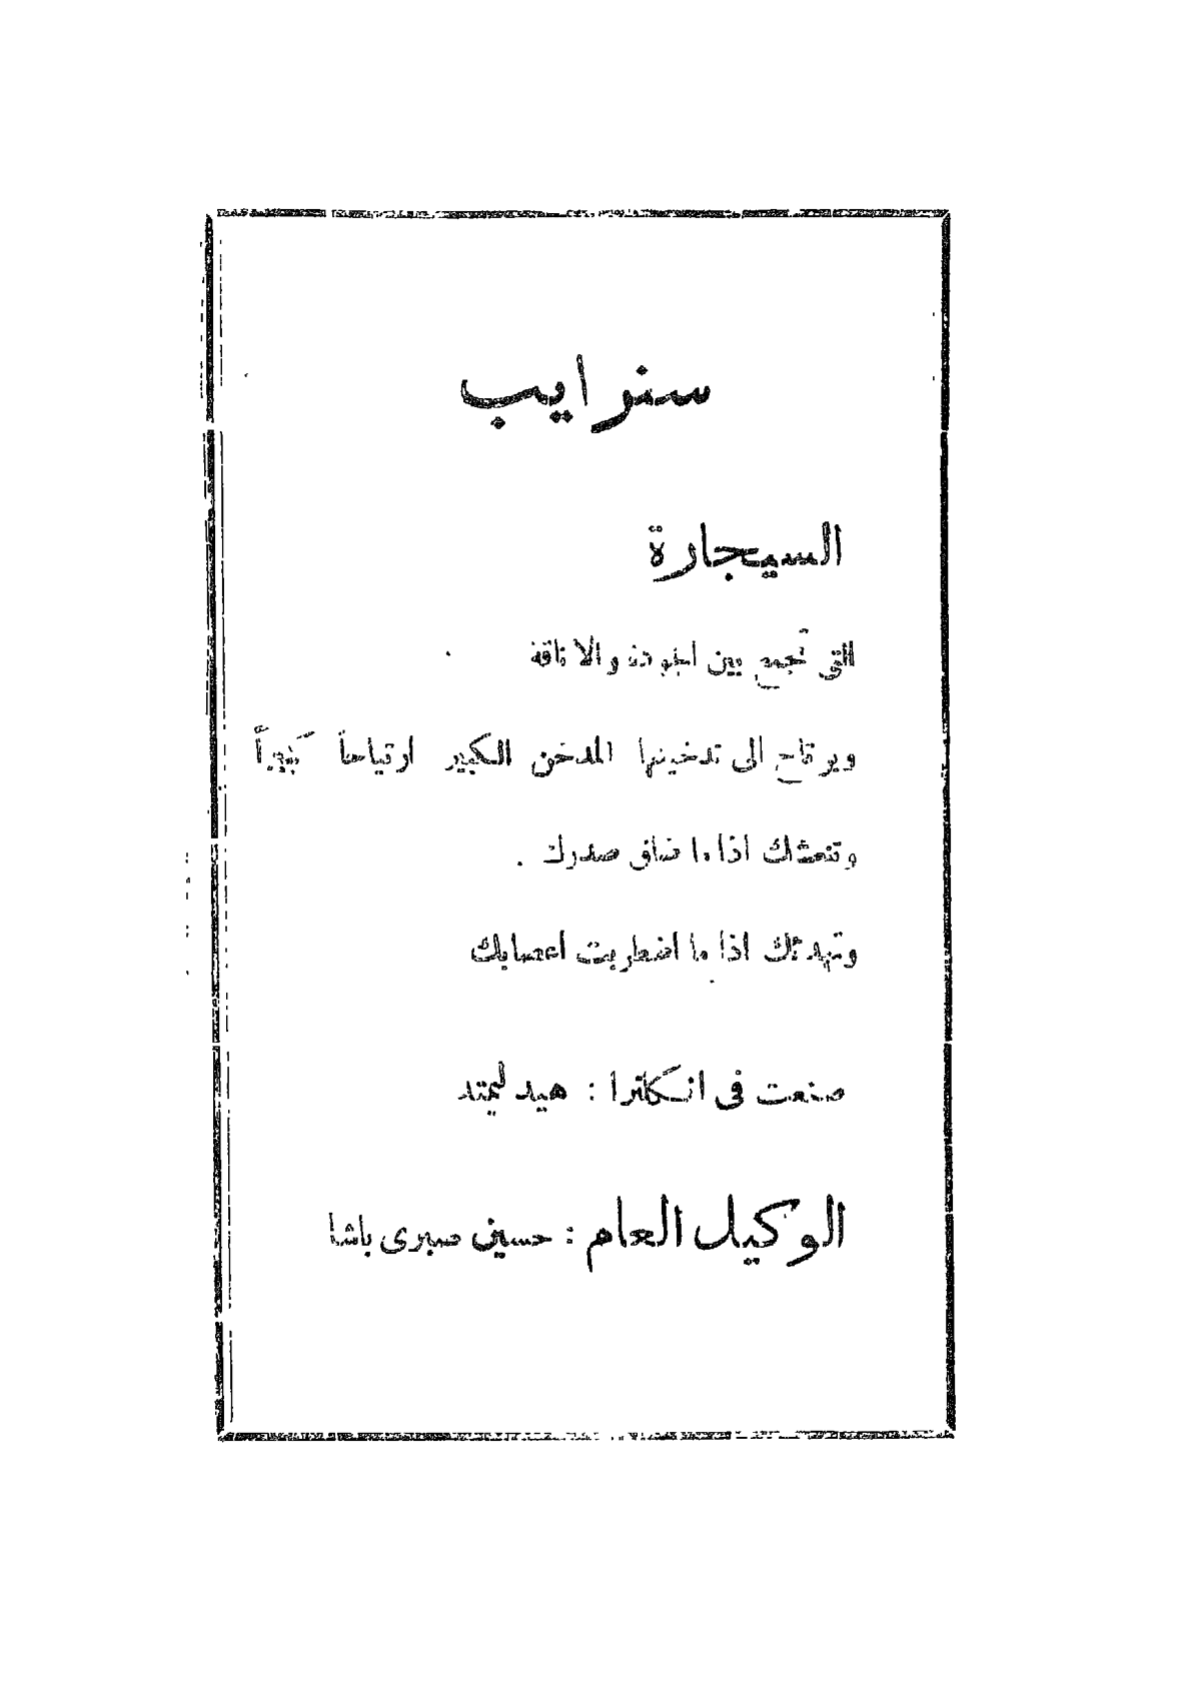 سنرايب
السيجارة
التى تجمع بين الجودة والاناقة
ويرتاح الى تدخينها المدخن الكبير ارتياحاً كبيراً
وتنعشك اذا ما ضاق صدرك .
وتهدئك اذا ما اضطربت اعصابك
صنعت فى انكلترا : هيد ليمتد
الوكيل العام : حسين صبرى باشا